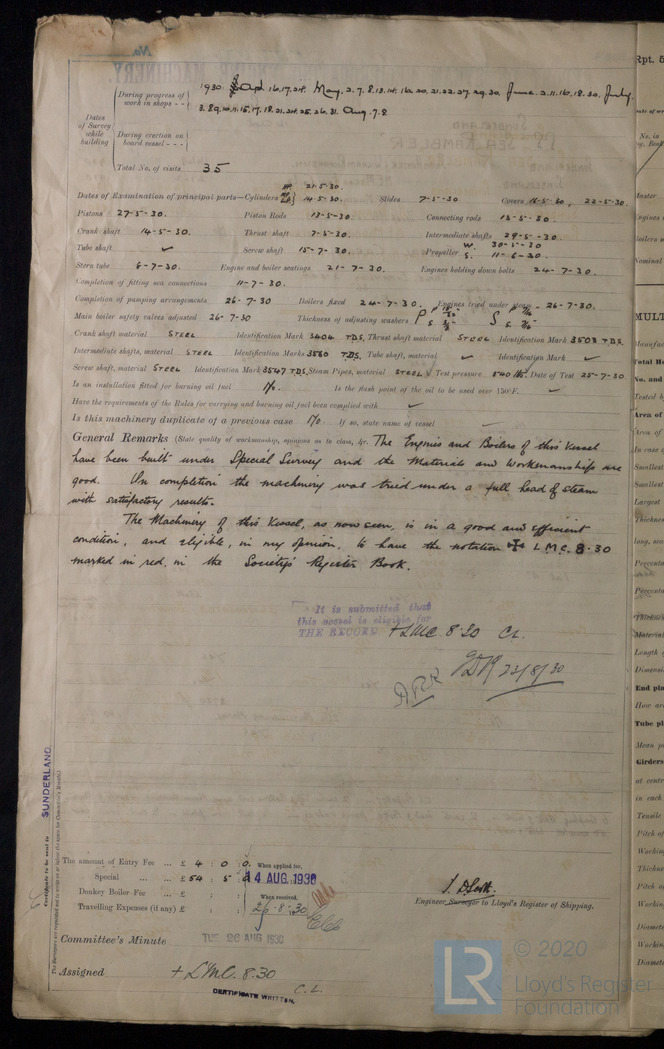 No.
During progress of work in shops - - 1930. Apl 16.17.24. May. 2.7.8.13.14.16.20.21.22.27.29.30. June. 2.11.16.18.30. July.
3.8.9.10.11.15.17.18.21.24.25.26.31. Aug. 7.8
Dates of Survey while building
During erection on board vessel - - -
Total No. of visits 35
Dates of Examination of principal parts—Cylinders HP 21.5.30. 14.5.30. Slides 7-5-30 Covers 16-5-30, 22-5-30.
Pistons 27-5-30. Piston Rods 13-5-30. Connecting rods 13-5-30.
Crank shaft 14-5-30. Thrust shaft 7-5-30. Intermediate shafts 29-5-30.
Tube shaft ✓ Screw shaft 15-7-30. Propeller W. 30-5-30 S. 11-6-30.
Stern tube 6-7-30. Engine and boiler seatings 21-7-30. Engines holding down bolts 24-7-30.
Completion of fitting sea connections 11-7-30.
Completion of pumping arrangements 26-7-30 Boilers fixed 24-7-30. Engines tried under steam 26-7-30.
Main boiler safety valves adjusted 26-7-30 Thickness of adjusting washers
Crank shaft material STEEL Identification Mark 3404 T.D.S. Thrust shaft material STEEL Identification Mark 3503 T.D.S.
Intermediate shafts, material STEEL Identification Marks 3560 T.D.S. Tube shaft, material ✓ Identification Mark ✓
Screw shaft, material STEEL Identification Mark 3547 T.D.S. Steam Pipes, material STEEL ✓ Test pressure 540 lbs. Date of Test 25-7-30
Is an installation fitted for burning oil fuel No. Is the flash point of the oil to be used over 150°F. ✓
Have the requirements of the Rules for carrying and burning oil fuel been complied with ✓
Is this machinery duplicate of a previous case No If so, state name of vessel
General Remarks (State quality of workmanship, opinions as to class, &c. The Engines and Boilers of this Vessel
have been built under Special Survey and the Materials and Workmanships are
good. On completion the machinery was tried under a full head of steam
with satisfactory results.
The Machinery of this Vessel, as now seen, is in a good and efficient
condition, and eligible, in my opinion, to have the notation ✠ L.M.C. 8.30
marked in red, in the Society's Register Book.
It is submitted that
this vessel is eligible for
THE RECORD. + LMC. 8.30 CL.
22/8/30
SUNDERLAND.
Certificate to be sent to
The amount of Entry Fee ... £ 4 : 0 : 0. When applied for,
Special ... £ 54 : 5 : 0 14 AUG. 1930
Donkey Boiler Fee ... £ : : When received,
Travelling Expenses (if any) £ : : 26.8.30
Engineer Surveyor to Lloyd's Register of Shipping.
Committee's Minute TUE. 26 AUG 1930
Assigned + LMC. 8.30
C.L.
CERTIFICATE WRITTEN.
Rpt. 5
MULT
LR
© 2020
Lloyd's Register
Foundation